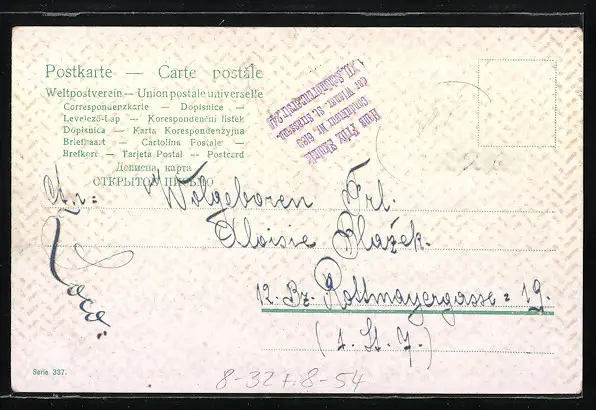 Postkarte — Carte postale
Weltpostverein — Union postale universelle
Correspondenzkarte — Dopisnice —
Levelező-Lap — Korespondenčni listek
Dopisnica — Karta Korespondenzyjna
Briefkaart — Cartolina Postale —
Brefkort — Tarjeta Postal — Postcard
Дописна карта
ОТКРЫТОЕ ПИСЬМО
Conducteur Nr. 6139
der Wiener-st. Strassenb.
An: Wolgeboren Frl.
Aloisie Blažek.
12. Bz. Rottmayergasse: 19.
(1. St. 7.)
Loco.
Serie 337.
8-32 + 8-54